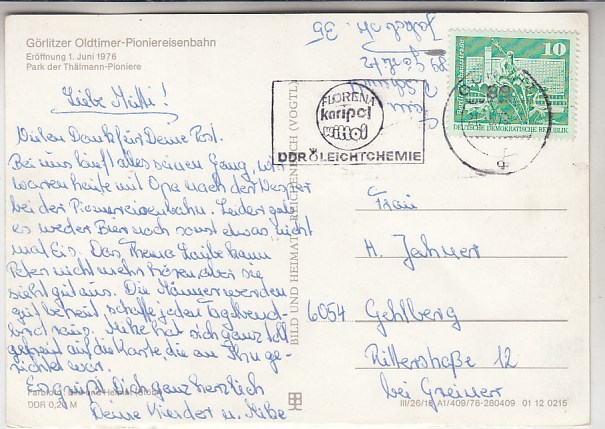 Görlitzer Oldtimer-Pioniereisenbahn
Eröffnung 1. Juni 1976
Park der Thälmann-Pioniere
Liebe Mutti!
Vielen Dank für Deine Post.
Bei uns läuft alles seinen Gang, wir
waren heute mit Opa nach der Vesper
bei der Pioniereisenbahn. Leider gab
es weder Bier noch sonst etwas nicht
mal Eis. Das Thema Laube kann
Peter nicht mehr hören aber sie
sieht gut aus. Die Männer werden
gut betreut schaffe jeden Tag
raus. Mike hat sich ganz toll
gefreut auf die Karte die an Ihn ge-
richtet war.
Es grüßt Dich ganz herzlich
Deine Kinder u. Mike
DDR 0,20 M
BILD UND HEIMAT REICHENBACH (VOGTL
89 Görlitz
FLORENA
karipol
wittol
DDR LEICHTCHEMIE
10
DEUTSCHE DEMOKRATISCHE REPUBLIK
Frau
H. Jahner
6054 Gehlberg
Ritterstraße 12
bei Greiner
III/26/13 A1/409/76-280409 01 12 0215